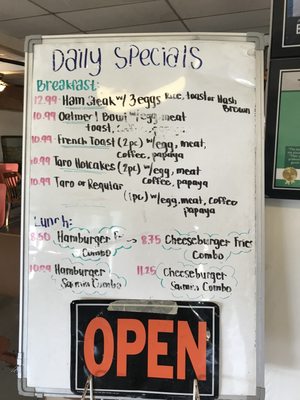 Daily Specials
Breakfast:
12.99 Ham Steak w/ 3 eggs Rice, toast or Hash
Brown
10.99 Oatmeal Bowl w/ egg, meat
toast,
10.99 French Toast (2pc) w/egg, meat,
coffee, papaya
10.99 Taro Hotcakes (2pc) w/egg, meat,
coffee, papaya
10.99 Taro or Regular
(1pc) w/egg, meat, coffee
papaya
Lunch:
8.50 Hamburger
Combo
8.75 Cheeseburger Fries
Combo
10.99 Hamburger
Saimin Combo
11.25 Cheeseburger
Saimin Combo
OPEN